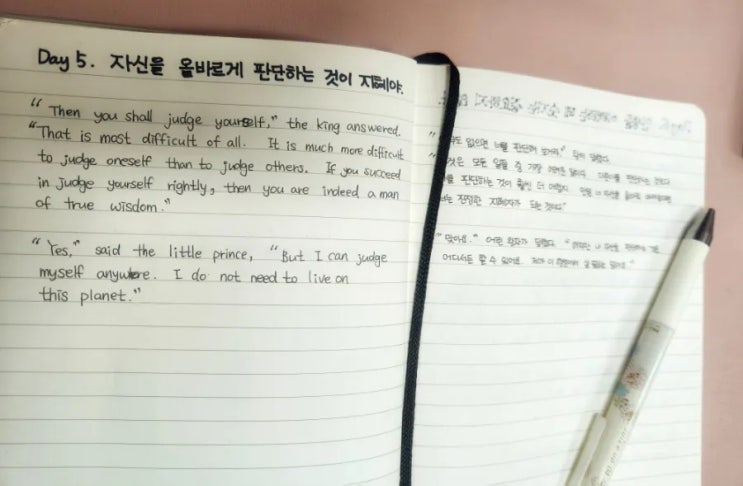 Day 5. 자신을 올바르게 판단하는 것이 지혜야.
“Then you shall judge yourself,” the king answered.
“That is most difficult of all. It is much more difficult
to judge oneself than to judge others. If you succeed
in judge yourself rightly, then you are indeed a man
of true wisdom.”
“Yes,” said the little prince, “But I can judge
myself anywhere. I do not need to live on
this planet.”
없으면 너를 판단하 왕이 말했다.
것은 모든 일들 중 가장 어려운 일이다.
판단하는 것이 훨씬 더 어렵다.
진정한 지혜자가 되는 것이다”
“맞아요.” 어린 왕자가 말했다.
어디서든 할 수 있어요.